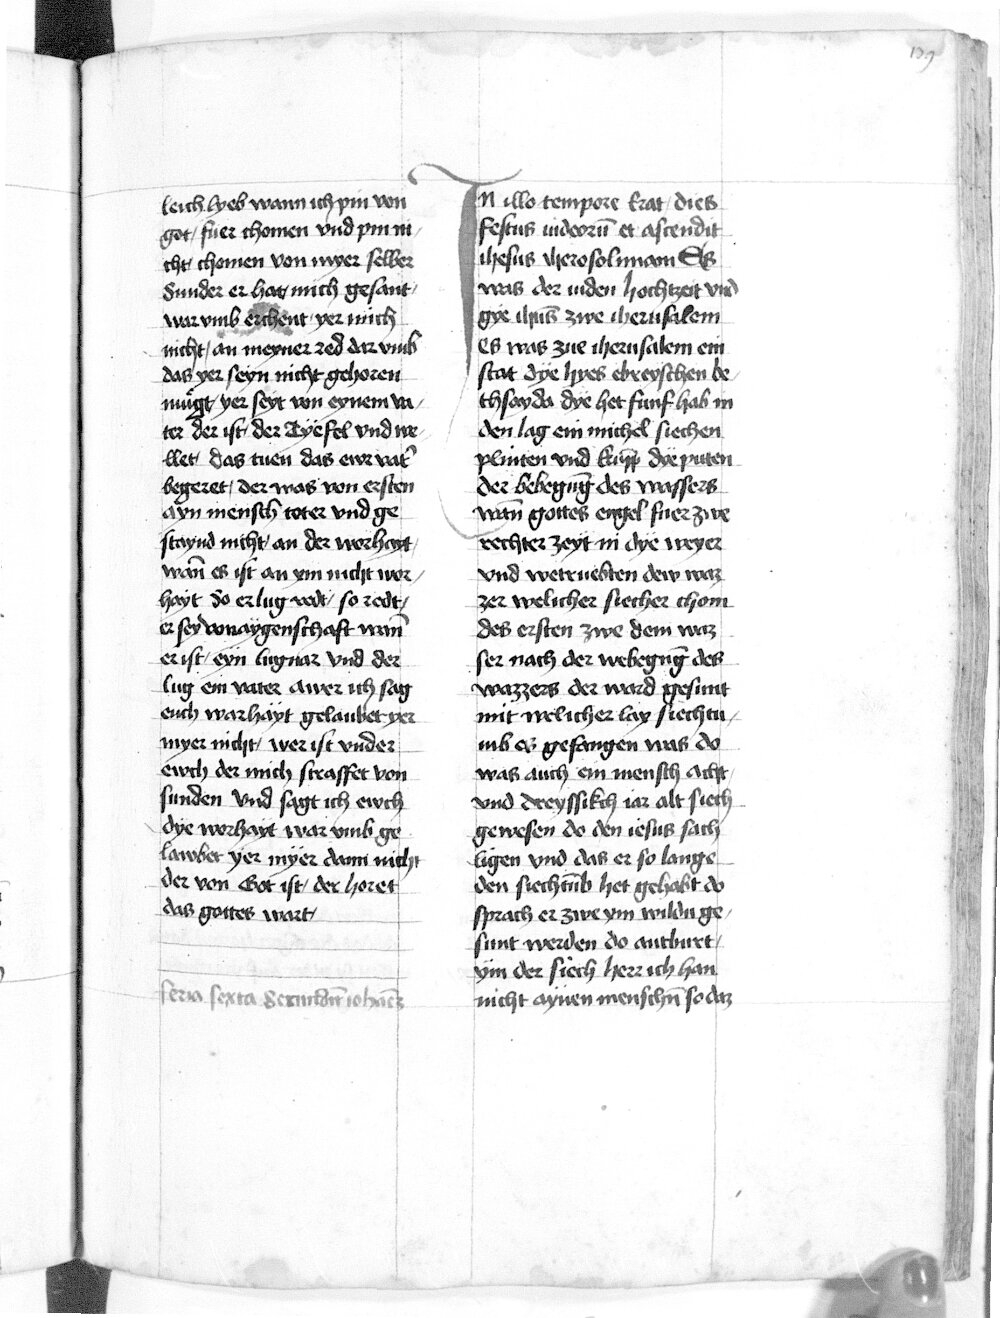 139
leich lyeb wann ich pin von
got / fuer chomen vnd pin ni /
cht / chomen von myer selber
Sunder er hat / mich gesant /
war vmb erchent / yer mich
nicht / an meyner red dar vmb
das yer seyn nicht gehoren
mugt / yer seyt von eynem va /
ter der ist / der Tyefel vnd we /
llet / das tuen das ewr vat̄
begeret / der was von ersten
ayn mensch toter vnd ge
staynd nicht / an der worhayt /
wan̄ es ist an ym nicht wor /
hayt So er lug redt / so redt /
er sey von aygenschaft wan̄
er ist / eyn lugnar vnd der
lug ein vater awer ich sag
euch warhayt gelaubet yer
myer nicht / wer ist vnder
ewch der mich straffet von
sunden Vnd sagt ich ewch
dye worhayt war vmb ge
lawbet yer myer dann nicht
der von Got ist / der horet
das gottes wart /
feria sexta Secundū ioha̅ez
In illo tempore Erat / dies
festus iudeorū et ascendit
ihesus iherosolimam Es
was der iuden hochtzeit vnd
gye ihūs zwe iherusalem
Es was zue iherusalem ein
stat dye hyes ebreyschen be /
thsayda dye het funf hab in
den lag ein michel siechen
plinten vnd krūpp dye piten
der bebegūg des wassers
wan̄ gottes engel fuer zwe
rechter zeyt in dye weyer
vnd wetruebten dew waz
zer welicher siecher chom
des ersten zwe dem waz
ser nach der webegūg des
wazzers der ward gesunt
mit welicher lay siechtu /
mb es gefangen was do
was auch ein mensch acht /
vnd dreyssikch iar alt siech
gewesen do den iesus sach
ligen vnd das er so lange
den siechtūb het gehabt do
sprach er zwe ym wildu ge /
sunt werden do antburt /
ym der siech herr ich han
nicht aynen menschn̄ so daz